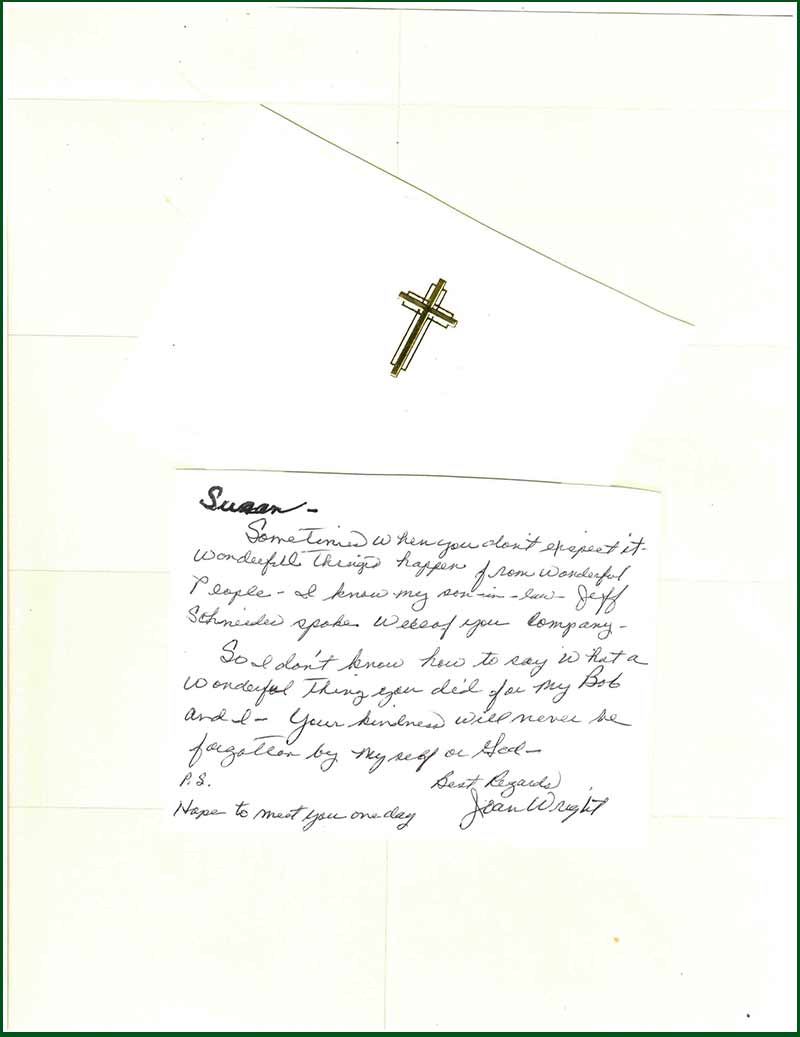 Susan -
Sometimes when you don't expect it -
wonderful things happen from wonderful
People - I know my son-in-law - Jeff
Schneider spoke well of you Company -
So I don't know how to say what a
wonderful thing you did for my Bob
and I - Your kindness will never be
forgotten by myself or God -
P.S. Best Regards
Hope to meet you one day Jean Wright